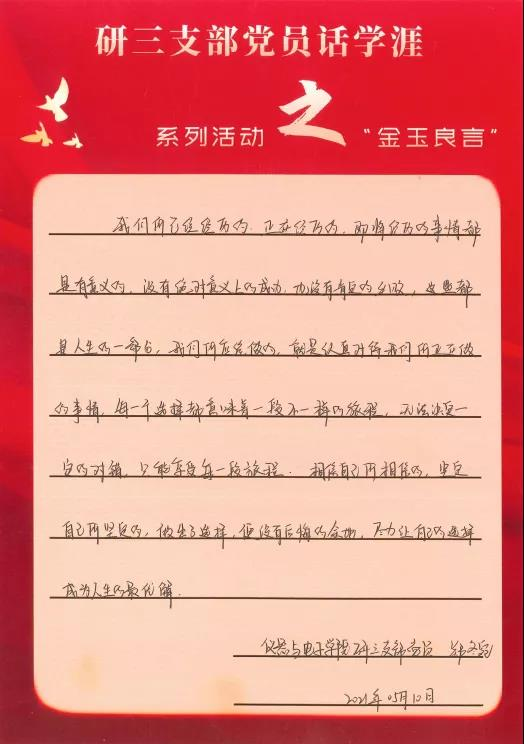 研三支部党员话学涯
系列活动之“金玉良言”
我们所已经经历的、正在经历的、即将经历的事情都
是有意义的，没有绝对意义上的成功，也没有肯定的失败，这些都
是人生的一部分，我们所应该做的，就是认真对待我们所正在做
的事情，每一个选择都意味着一段不一样的旅程，无法决定一
定的对错，只能享受每一段旅程．相信自己所相信的，坚定
自己所坚定的，做出了选择，便没有后悔的余地，尽力让自己的选择
成为人生的最优解．
仪器与电子学院研三支部党员
2021年05月10日